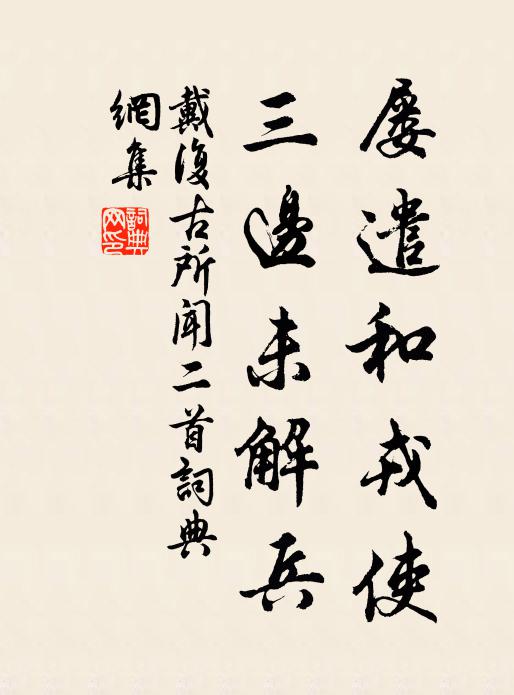 屢遣和戎使
三邊未解兵
戴復古所聞二首詞典
網集
詞典
网印